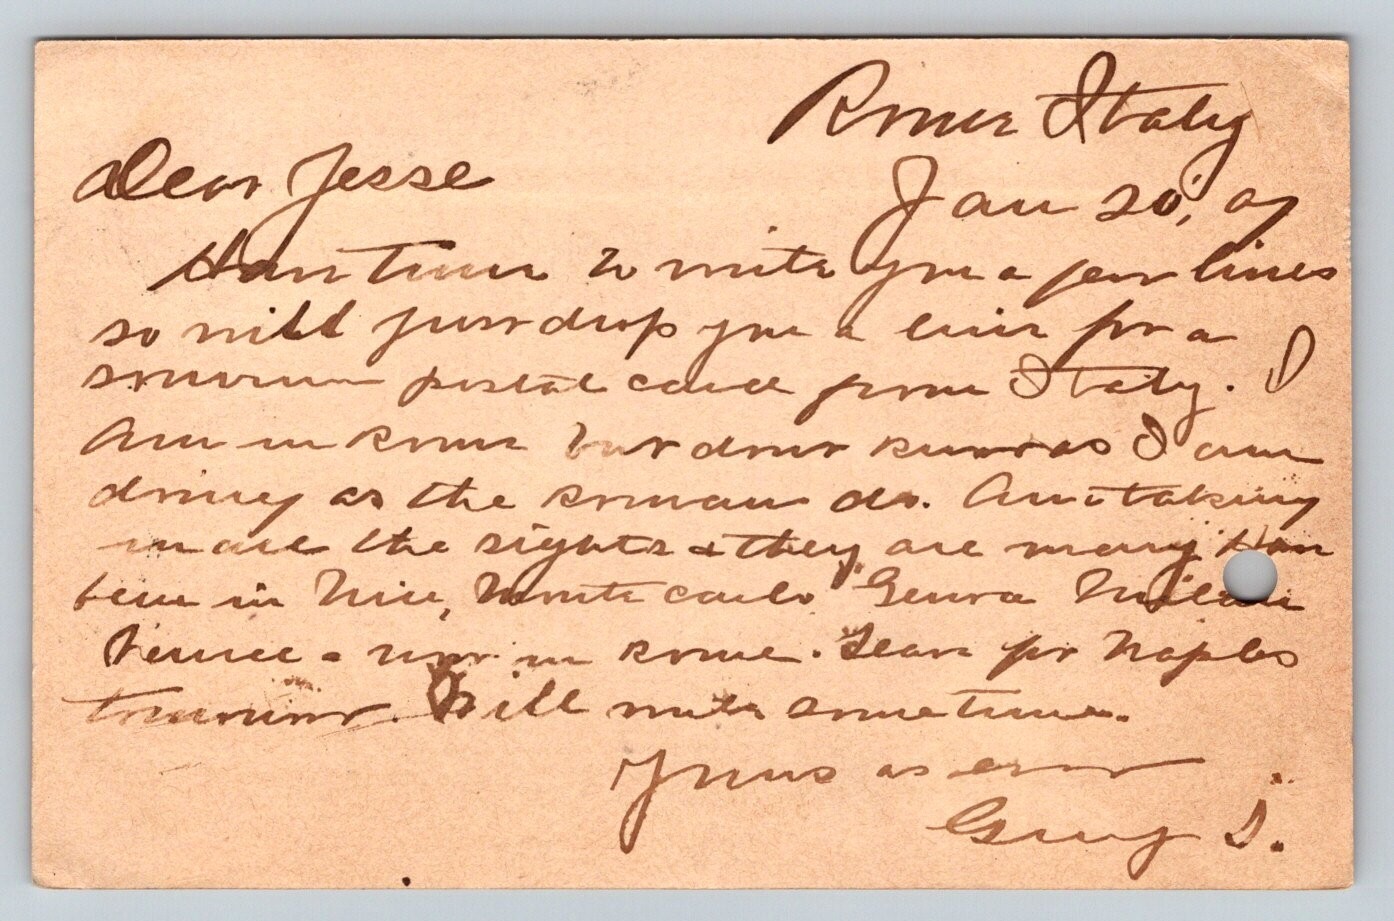 Rome Italy
Dear Jesse
Jan 20,
Have time to write you a few lines
so will just drop you a line for a
souvenir postal card from Italy. I
Am in Rome but dont know as I am
doing as the Roman do. Am taking
in all the sights & they are many Have
been in Nice, Monte Carlo Genoa Milan
Venice & now in Rome. Leave for Naples
tomorrow. Will write sometime.
Yours as ever
Guy S.